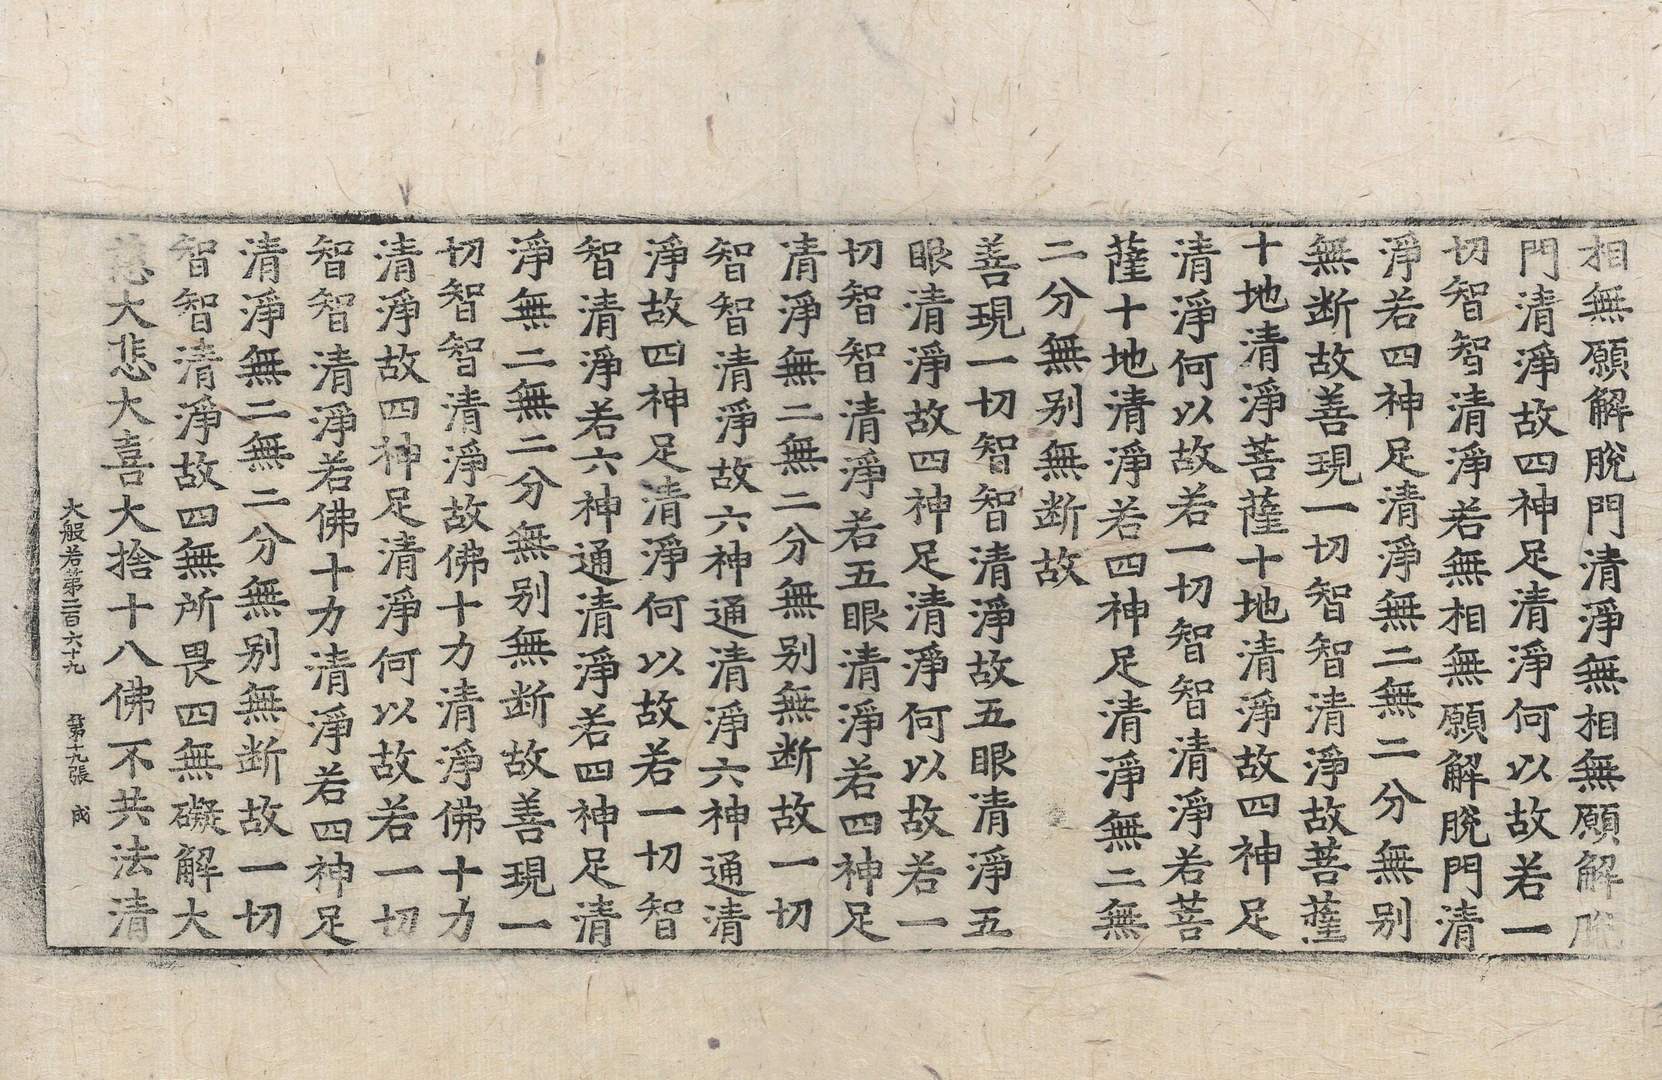 相無願解脫門清淨無相無願解脫
門清淨故四神足清淨何以故若一
切智智清淨若無相無願解脫門清
淨若四神足清淨無二無二分無別
無断故善現一切智智清淨故菩薩
十地清淨菩薩十地清淨故四神足
清淨何以故若一切智智清淨若菩
薩十地清淨若四神足清淨無二無
二分無別無断故
善現一切智智清淨故五眼清淨五
眼清淨故四神足清淨何以故若一
切智智清淨若五眼清淨若四神足
清淨無二無二分無別無断故一切
智智清淨故六神通清淨六神通清
淨故四神足清淨何以故若一切智
智清淨若六神通清淨若四神足清
淨無二無二分無別無断故善現一
切智智清淨故佛十力清淨佛十力
清淨故四神足清淨何以故若一切
智智清淨若佛十力清淨若四神足
清淨無二無二分無別無断故一切
智智清淨故四無所畏四無礙解大
慈大悲大喜大捨十八佛不共法清
大般若第二百六十九 第十九張 成